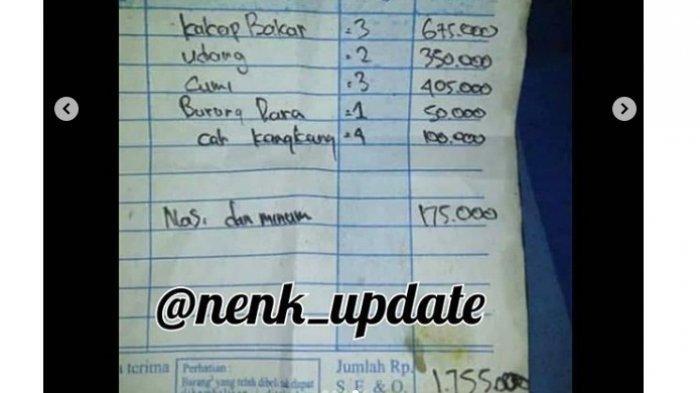 kakap Bakar = 3 675.000
udang = 2 350.000
Cumi = 3 405.000
Burung Dara = 1 50.000
cah kangkang = 4 100.000
Nasi dan minum 175.000
@nenk_update
terima Perhatian : Jumlah Rp. 1.755.000
Barang² yang telah dibeli tidak dapat S.E. & O.